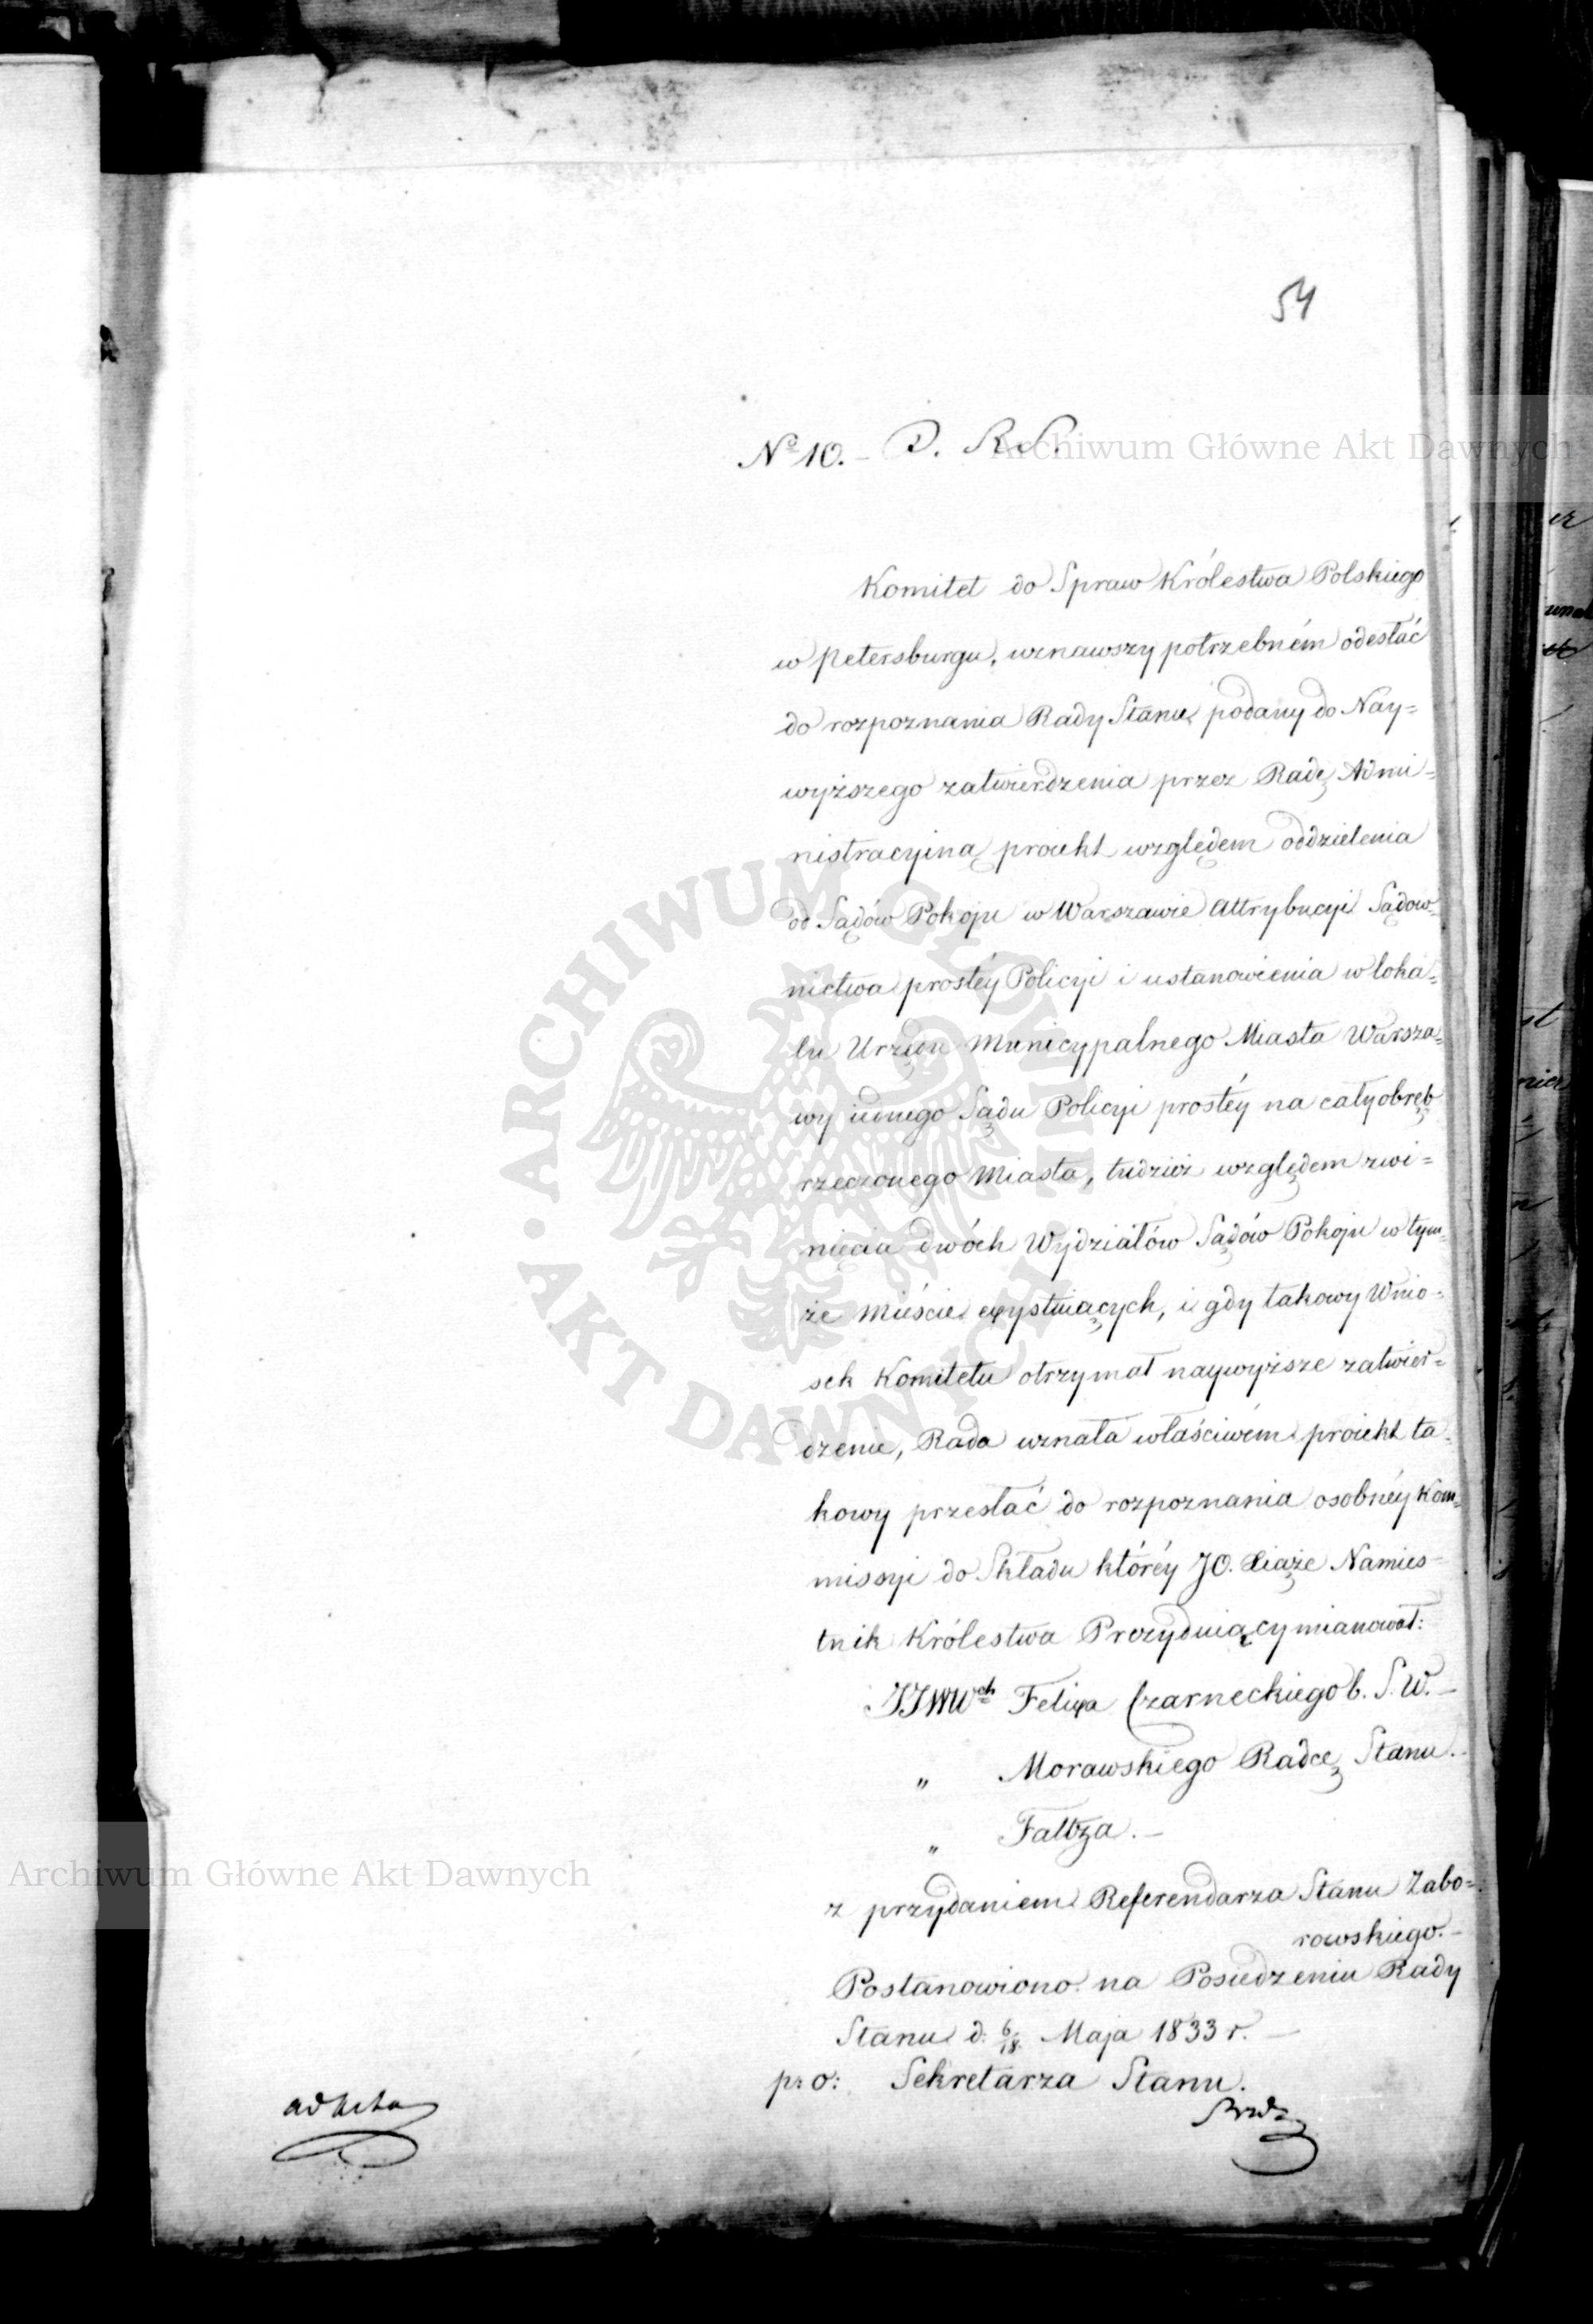 54
No 10. – D. R. S.
Komitet do Spraw Królestwa Polskiego
w Petersburgu, uznawszy potrzebném odesłać
do rozpoznania Rady Stanu podany do Nay=
wyższego zatwierdzenia przez Radę Admi=
nistracyiną proiekt względem oddzielenia
od Sądów Pokoju w Warszawie Attrybucyi Sądow=
nictwa prostéy Policyi i ustanowienia w loka=
lu Urzędu Municypalnego Miasta Warsza=
wy iednego Sądu Policyi prostéy na cały obręb
rzeczonego Miasta, tudzież względem zwi=
nięcia dwóch Wydziałów Sądów Pokoju w tym=
że Mieście exystuiących, i gdy takowy Wnio=
sek Komitetu otrzymał naywyższe zatwier=
dzenie, Rada uznała właściwém proiekt ta=
kowy przesłać do rozpoznania osobnéy Kom=
missyi do Składu któréy JO. Xiąże Namies=
tnik Królestwa Prezyduiący mianował:
JJWWch Felixa Czarneckiego b. S. W. –
„ Morawskiego Radcę Stanu. –
„ Faltza. –
z przydaniem Referendarza Stanu Zabo=
rowskiego. –
Postanowiono na Posiedzeniu Rady
Stanu d. 6/18 Maja 1833 r. –
p: o: Sekretarza Stanu.
ad acta
Archiwum Główne Akt Dawnych
Archiwum Główne Akt Dawnych
ARCHIWUM GŁÓWNE
AKT DAWNYCH